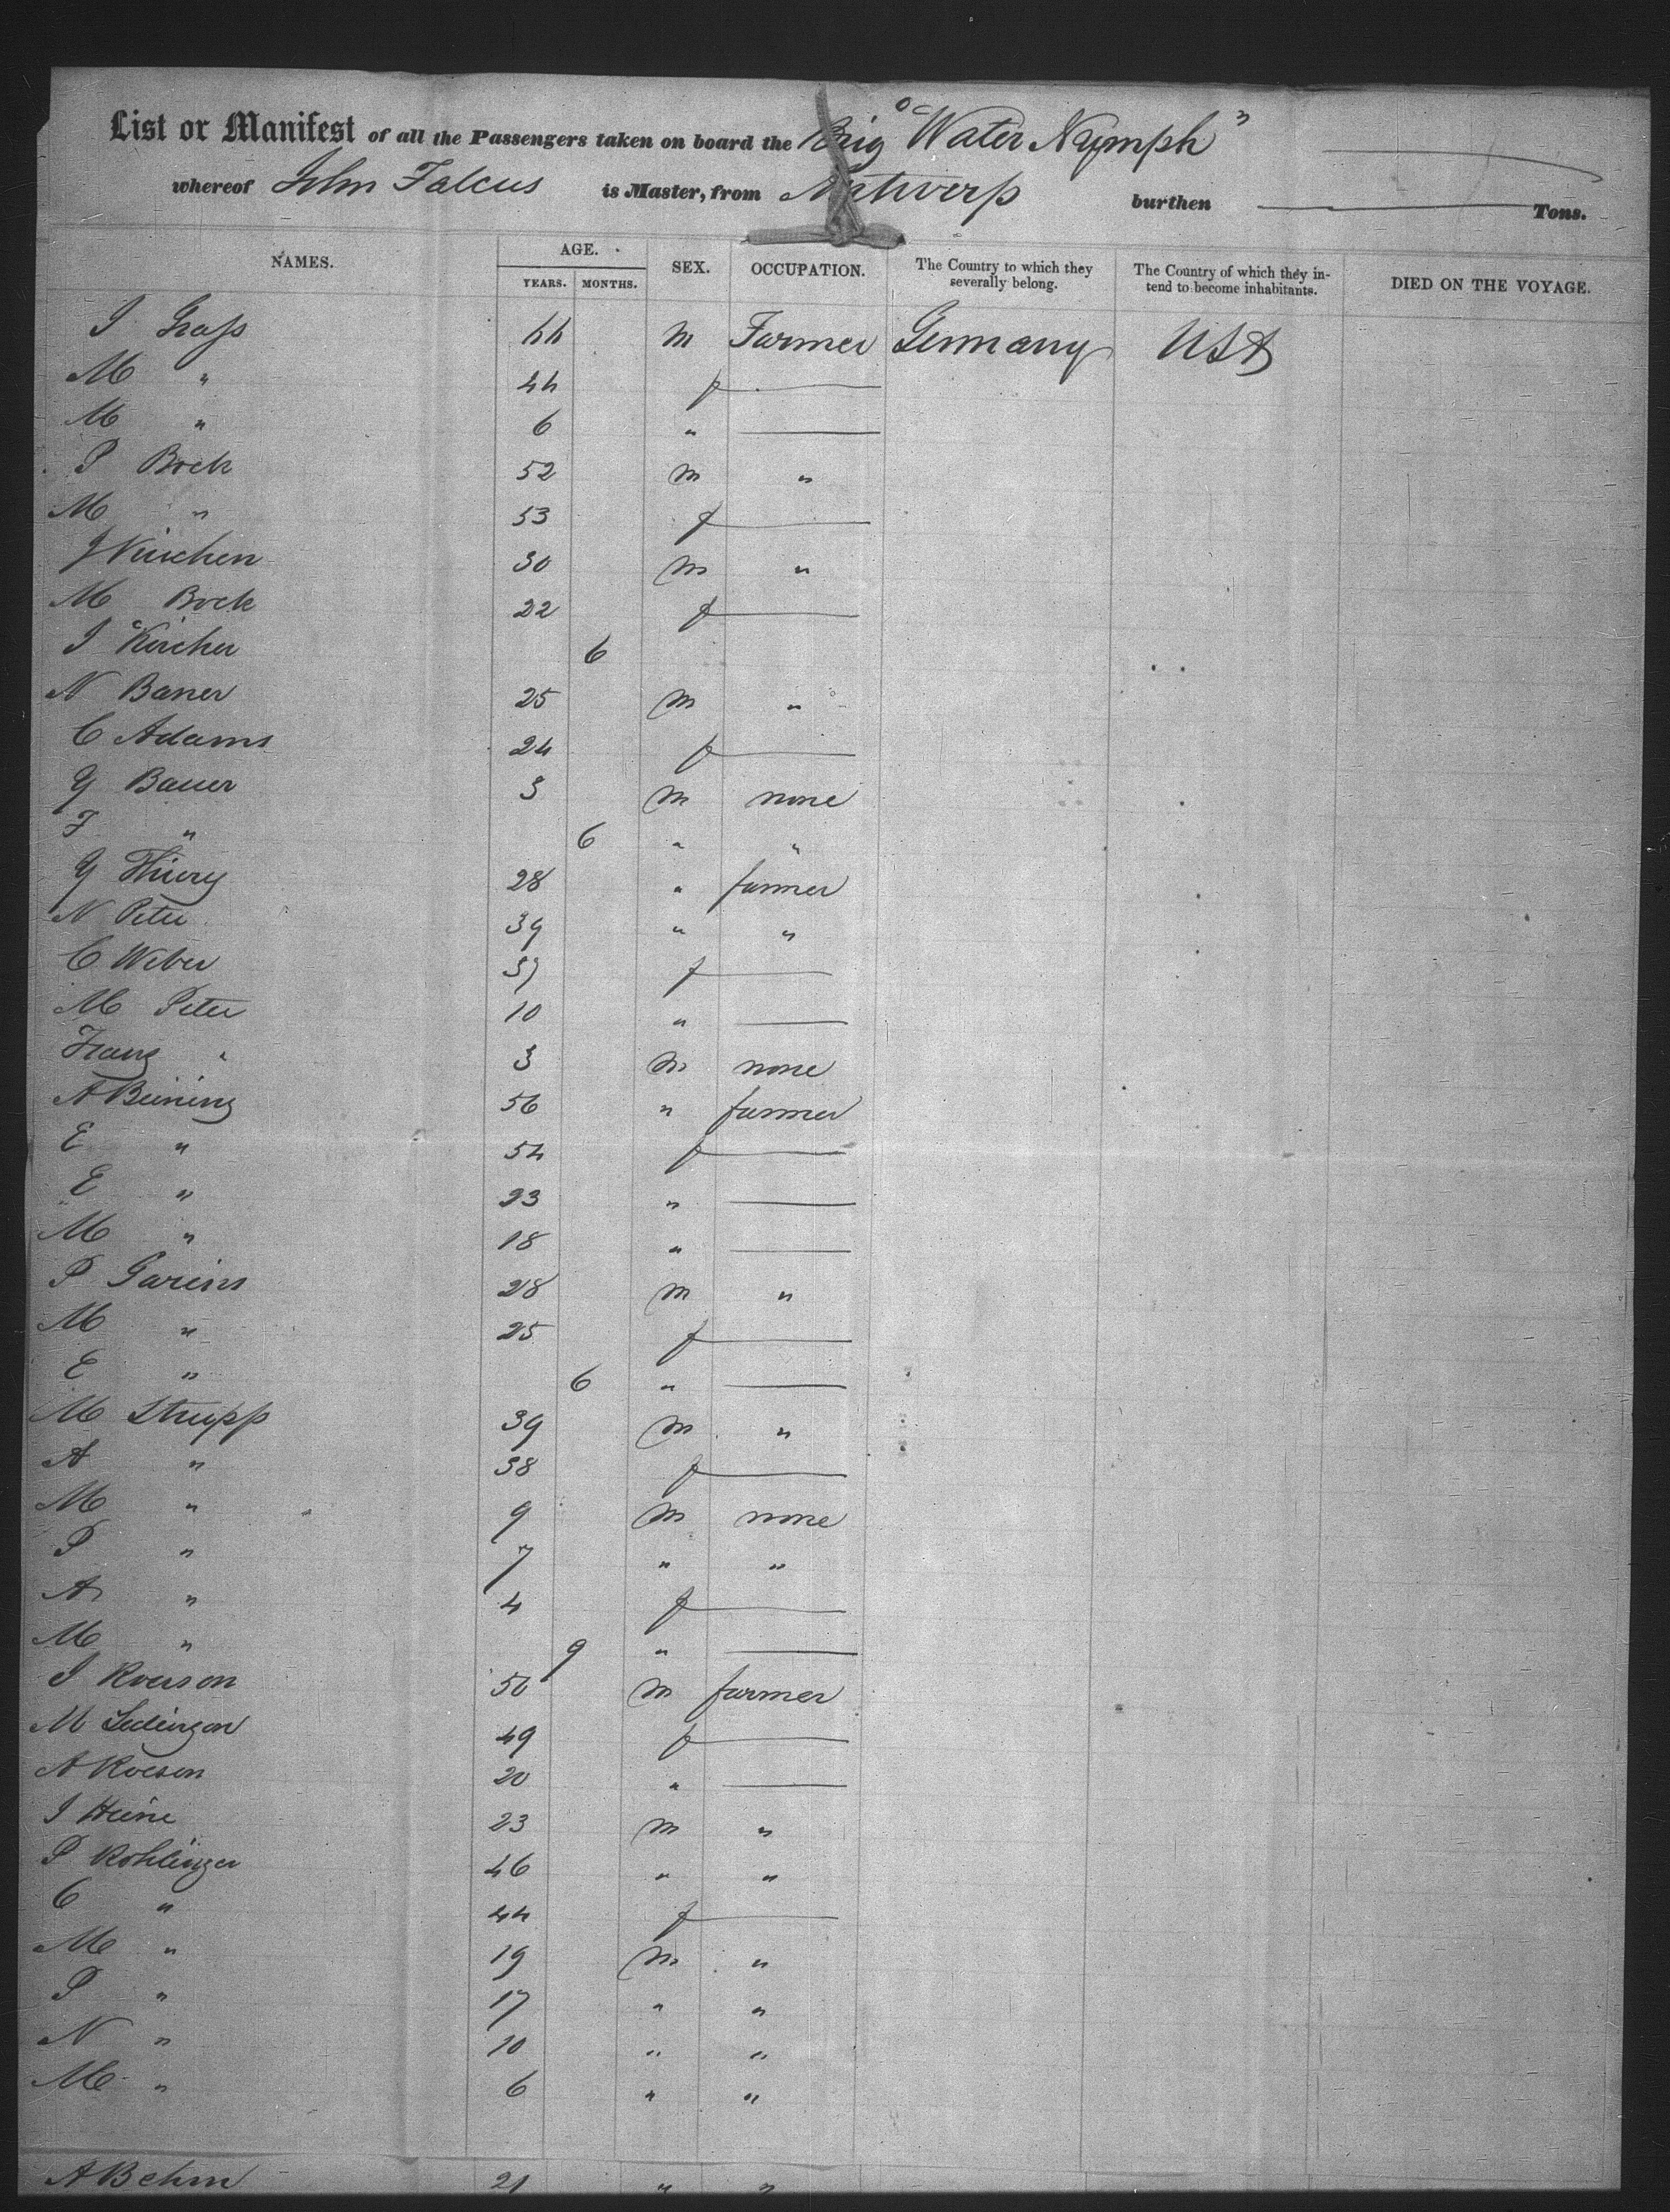 List or Manifest of all the Passengers taken on board the Brig "Water Nymph"
whereof John Falcus is Master, from Antwerp burthen Tons.
NAMES. AGE. YEARS. MONTHS. SEX. OCCUPATION. The Country to which they severally belong. The Country of which they intend to become inhabitants. DIED ON THE VOYAGE.
J Grass 44 m Farmer Germany USA
M " 44 f
M " 6 "
P Bock 52 m "
M " 53 f
J 30 m "
M Bock 22 f
J Kircher 6
N Baner 25 m "
C Adams 24 f
G Bauer 3 m none
F " 6 " "
G Thiery 28 " farmer
N Peter 39 " "
C Weber 37 f
M Peter 10 "
Franz " 3 m none
A Beining 56 " farmer
E " 54 f
E " 23 "
M " 18 "
P Gareins 28 m "
M " 25 f
E " 6 "
M Strupp 39 m "
A " 38 f
M " 9 m none
P " 7 " "
A " 4 f
M " 9 "
J Roeson 50 m farmer
M 49 f
A Roeson 20 "
J Heine 23 m "
P Rohlinger 46 " "
C " 44 f
M " 19 m "
P " 17 " "
N " 10 " "
M " 6 " "
A Behm 21 " "